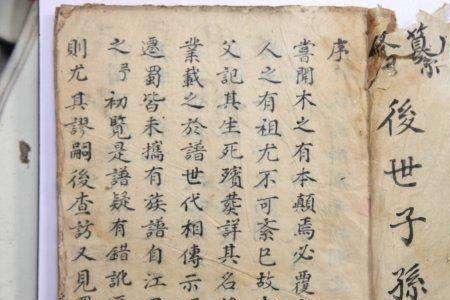 纂修
後世子孫
序
嘗聞木之有本顛焉必覆
人之有祖尤不可紊已故
父記其生死殯葬詳其名
業載之於譜世代相傳示
遷蜀皆未攜有族譜自江
之初覽是譜疑有錯訛
則尤其謬嗣後查訪又見